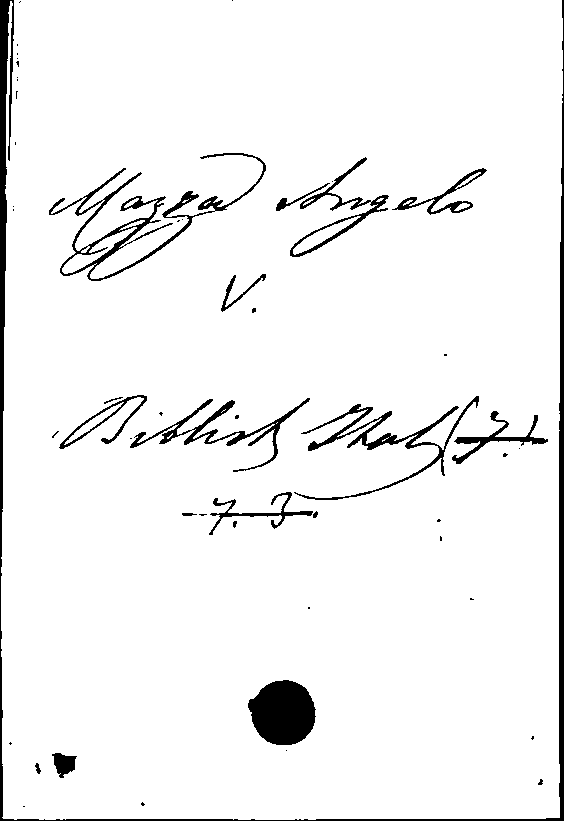 Mazza Angelo
V.
Bibliot. Ital. (7.)
7. 3.